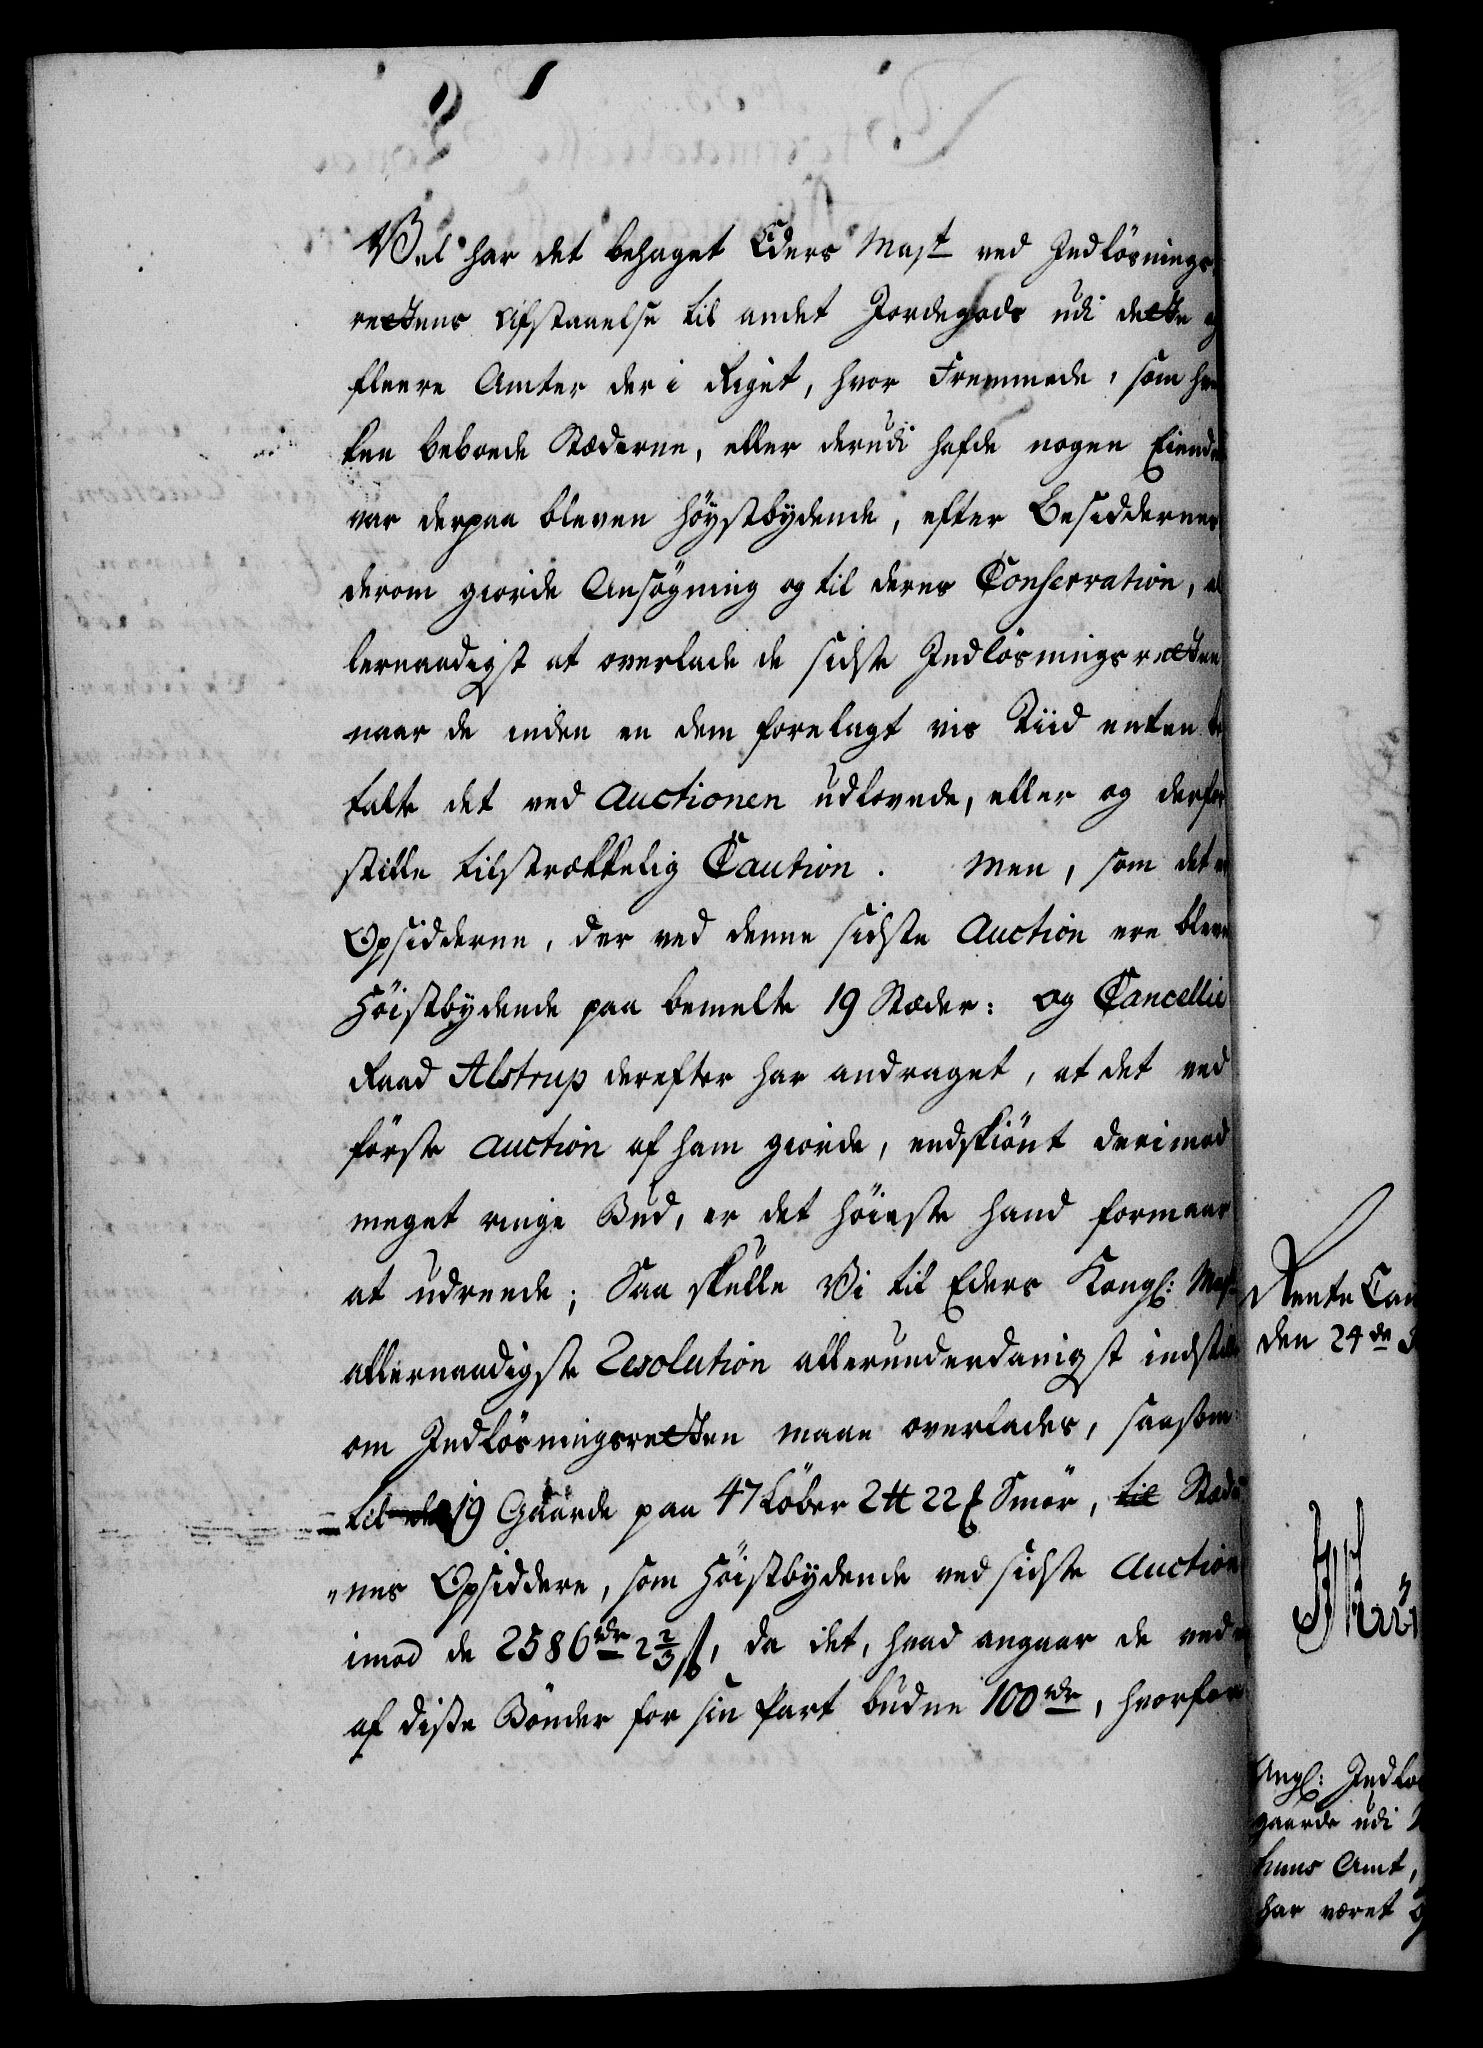 Vel har det behaget Eders Majt ved Indlösnings
rettens Afstaaelse til andet Jordegods udi dette og
fleere Amter der i Riget, hvor Fremmede, som hver
ken beboede Stæderne, eller derudi hafde nogen Eiendom
var derpaa bleven höystbydende, efter Besiddernes
derom giorde Ansögning og til deres Conservation, al
lernaadigst at overlade de sidste Indlösningsretten
naar de inden en dem forelagt vis Tiid enten be
talte det ved Auctionen udlovede, eller og derfor
stille tilstrækkelig Caution. Men, som det er
Opsidderne, der ved denne sidste Auction ere bleven
Höistbydende paa bemelte 19 Stæder: og Cancellie
Raad Alstrup derefter har andraget, at det ved
förste Auction af ham giorde, endskiönt derimod
meget ringe Bud, er det höieste hand formaar
at udreede; Saa skulle Vi til Eders Kongl: Mayt
allernaadigste Resolution allerunderdanigst indstille
om Indlösningsretten maae overlades, saasom
til de 19 Gaarde paa 47 Löber 2 ℔ 22 ß Smör, til Stæder
"nes Opsiddere, som Höistbydende ved sidste Auction
imod de 2586 rdr 2 2/3 ß, da det, hvad angaar de ved
af disse Bönder for sin Part budne 100 rdr, hvorfor
Rente Cam
den 24de
Angl: Indlös
gaarde udi
huus Amt,
har været